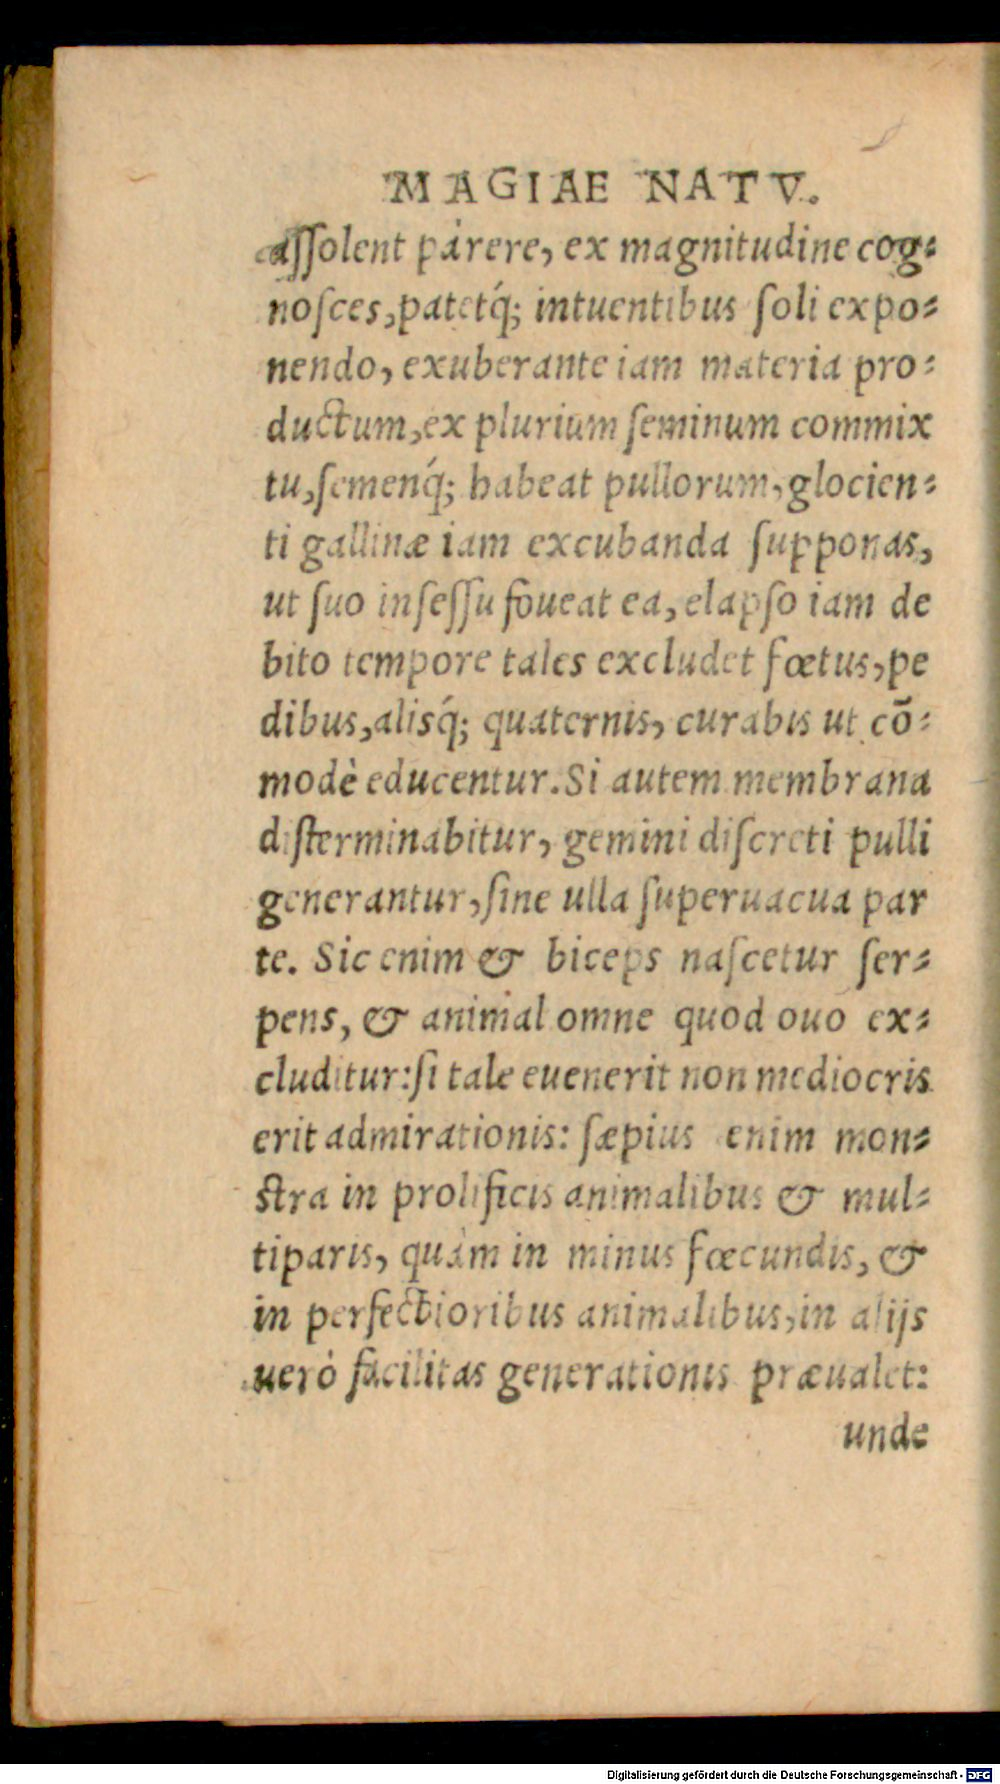 MAGIAE NATV.
aſſolent pàrere, ex magnitudine cog⸗
noſces, patetq́; intuentibus ſoli expo⸗
nendo, exuberante iam materia pro⸗
ductum, ex plurium ſeminum commix
tu, ſemenq́; habeat pullorum, glocien⸗
ti gallinæ iam excubanda ſupponas,
ut ſuo inſeſſu foueat ea, elapſo iam de
bito tempore tales excludet fœtus, pe
dibus, alisq́; quaternis, curabis ut cō⸗
modè educentur. Si autem membrana
diſterminabitur, gemini diſcreti pulli
generantur, ſine ulla ſuperuacua par
te. Sic enim & biceps naſcetur ſer⸗
pens, & animal omne quod ouo ex⸗
cluditur: ſi tale euenerit non mediocris
erit admirationis: ſæpius enim mon⸗
ſtra in prolificis animalibus & mul⸗
tiparis, quàm in minus fœcundis, &
in perfectioribus animalibus, in alijs
uerò facilitas generationis præualet:
unde
Digitalisierung gefördert durch die Deutsche Forschungsgemeinschaft - DFG